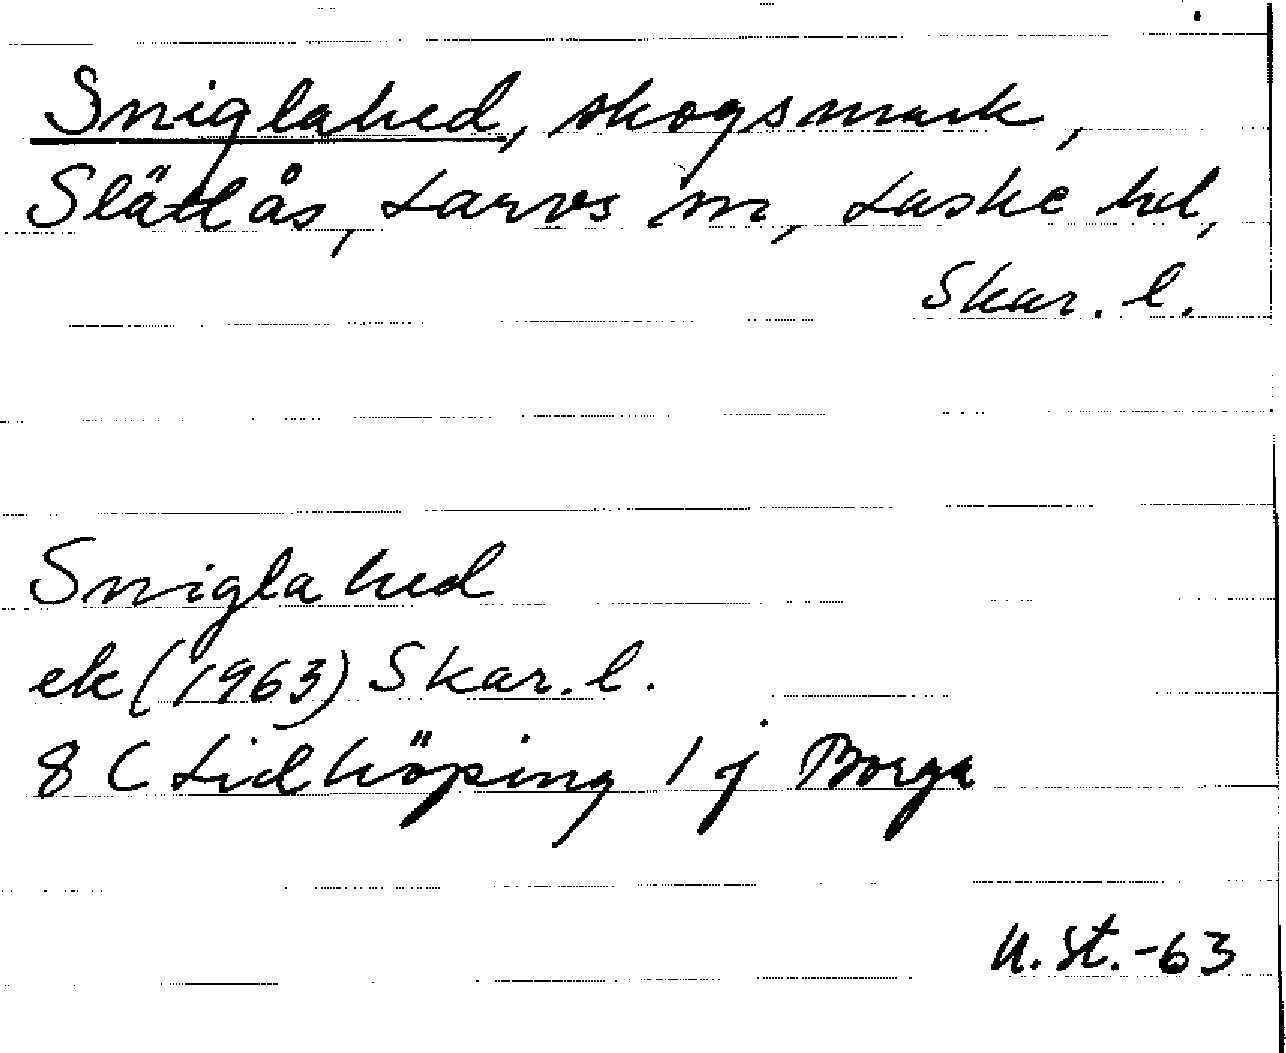 Sniglahed, skogsmark,
Slättås, Larvs sn, Laske hd,
Skar. l.
Snigla hed
ek (1963) Skar. l.
8 C Lidköping 1 j Borga
U. St. -63